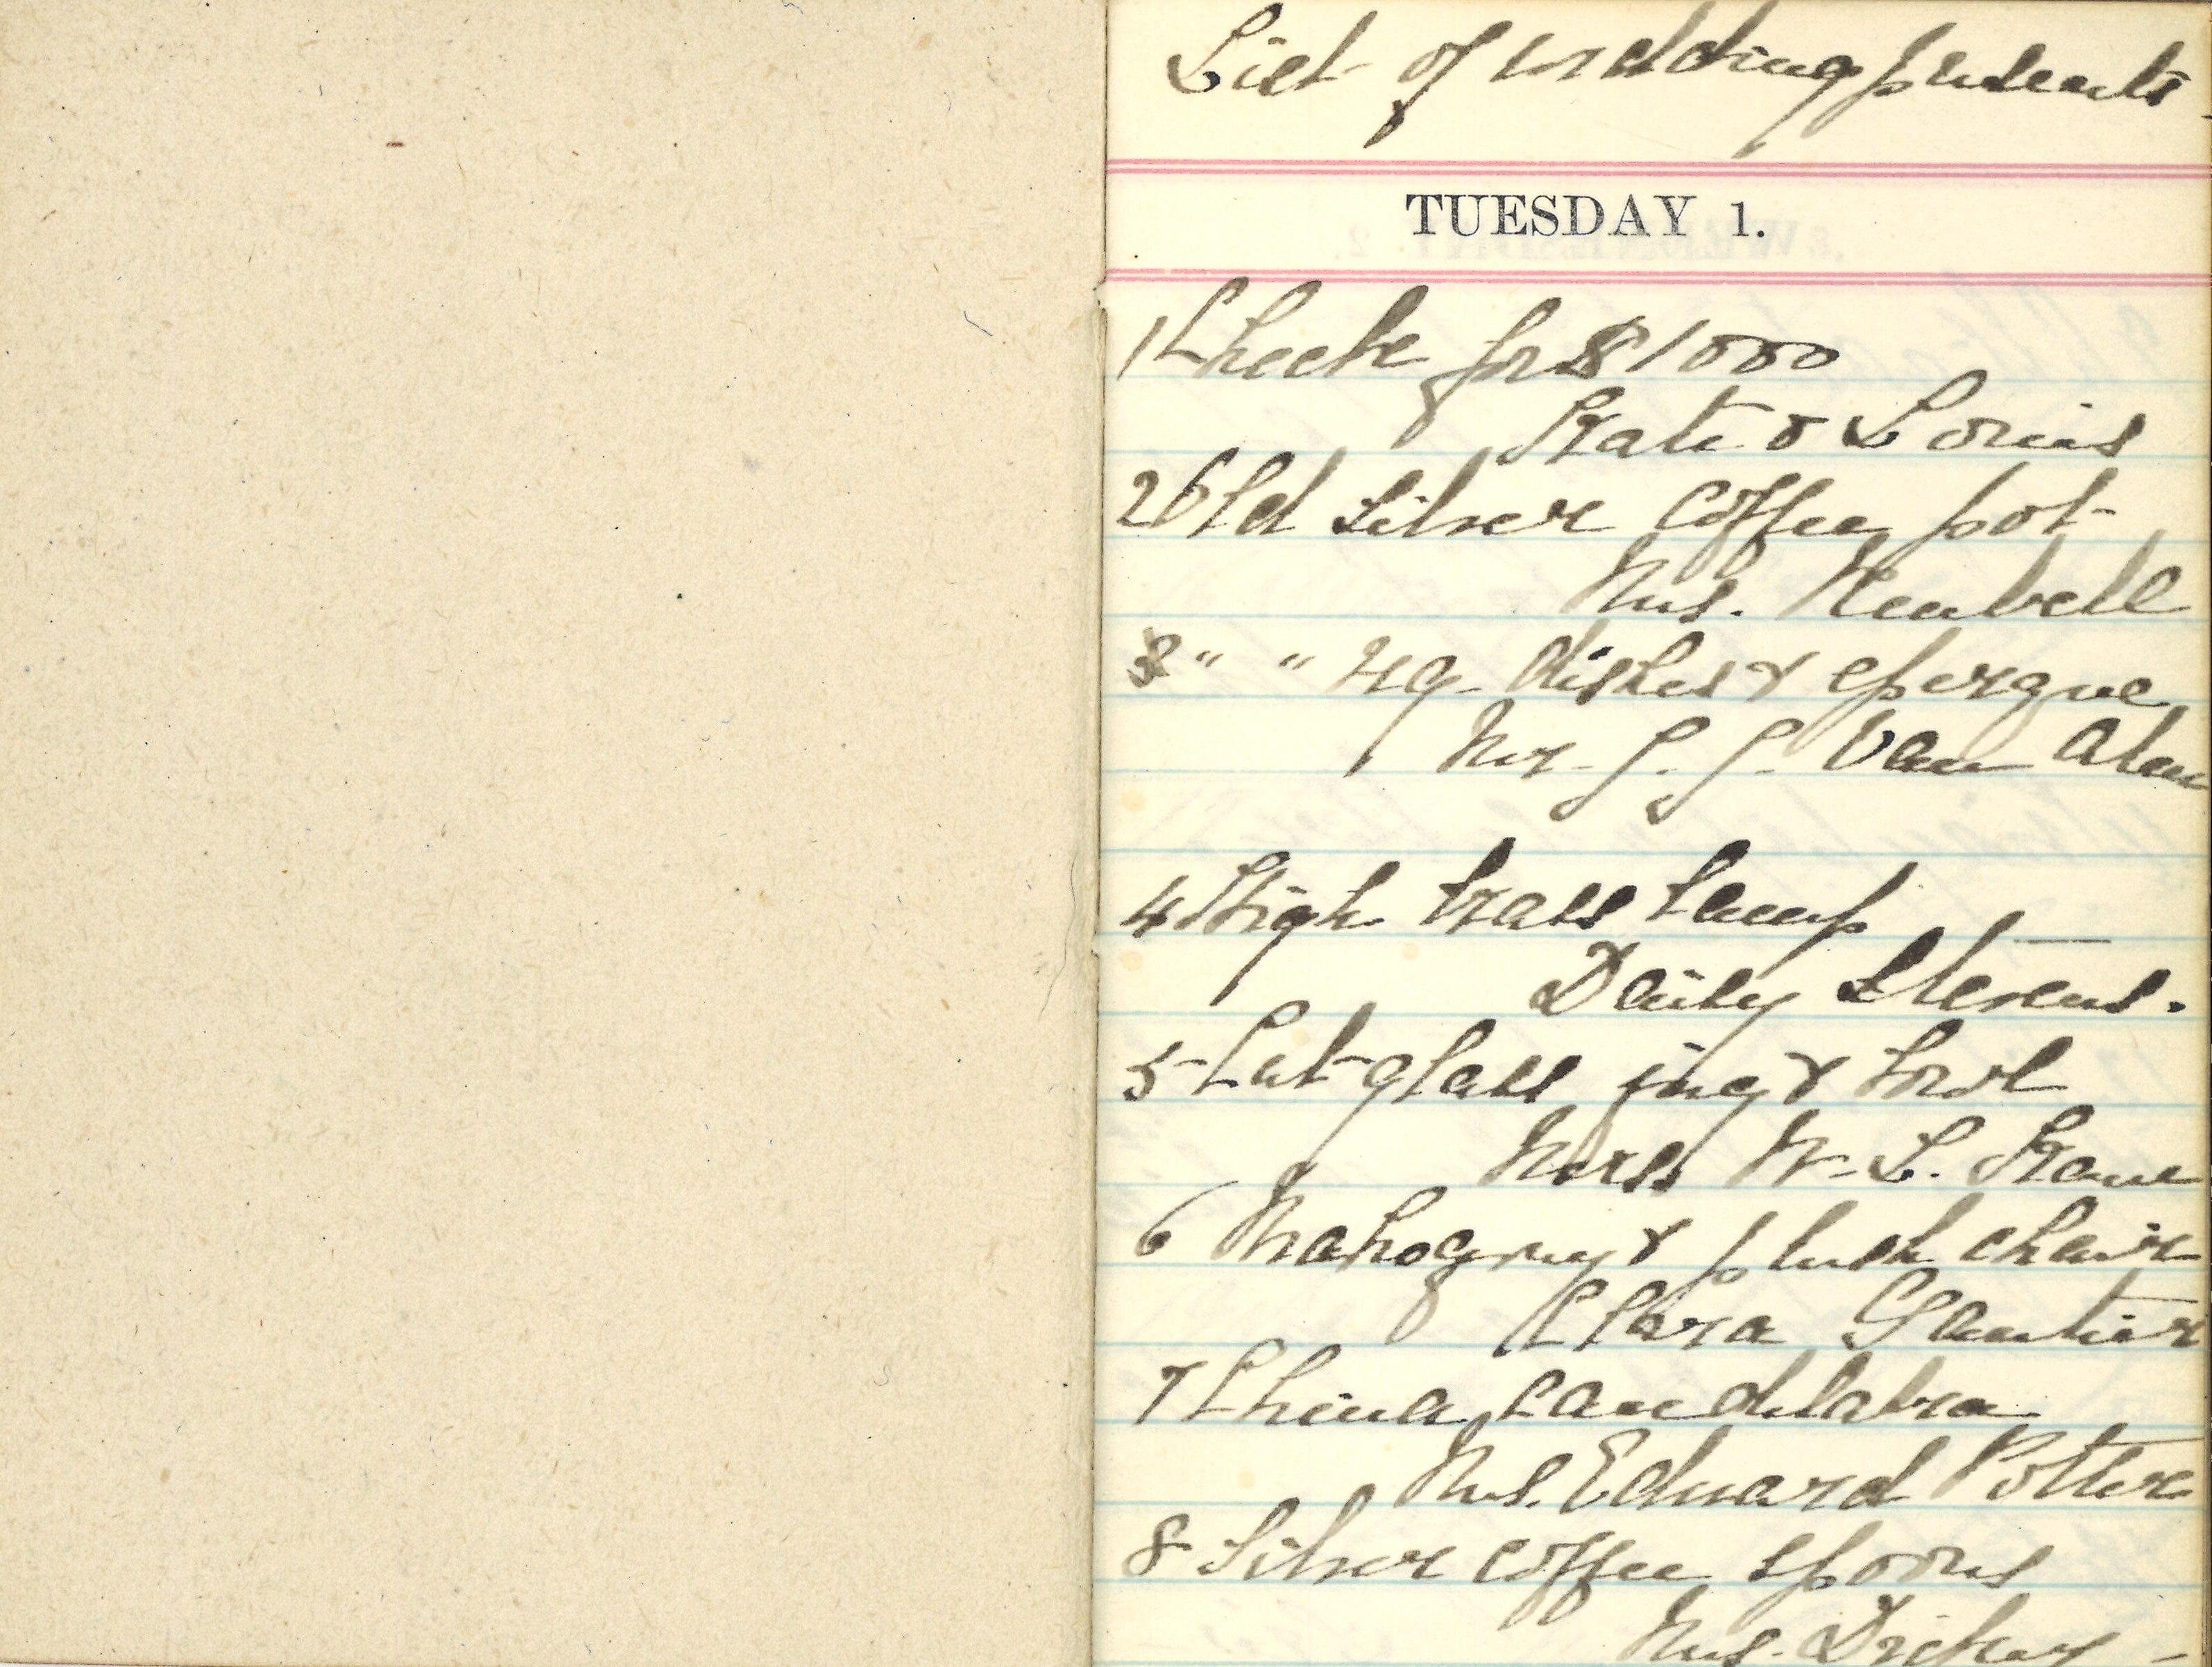 List of wedding presents
TUESDAY 1.
1 Check for $1000
Kate & Louis
2 Old Silver Coffee pot
Mrs. Heubell
3 " " veg. dishes & epergne
Mr. J. J. Van Alen
4 High brass lamp
Daisy Stevens.
5 Cut glass jug & bowl
Mrss W. L. Kane
6 Mahogny & plush chair
Clara Gautier
7 China candelabra
Mrs. Edward Potter
8 Silver coffee spoons
Mrs.